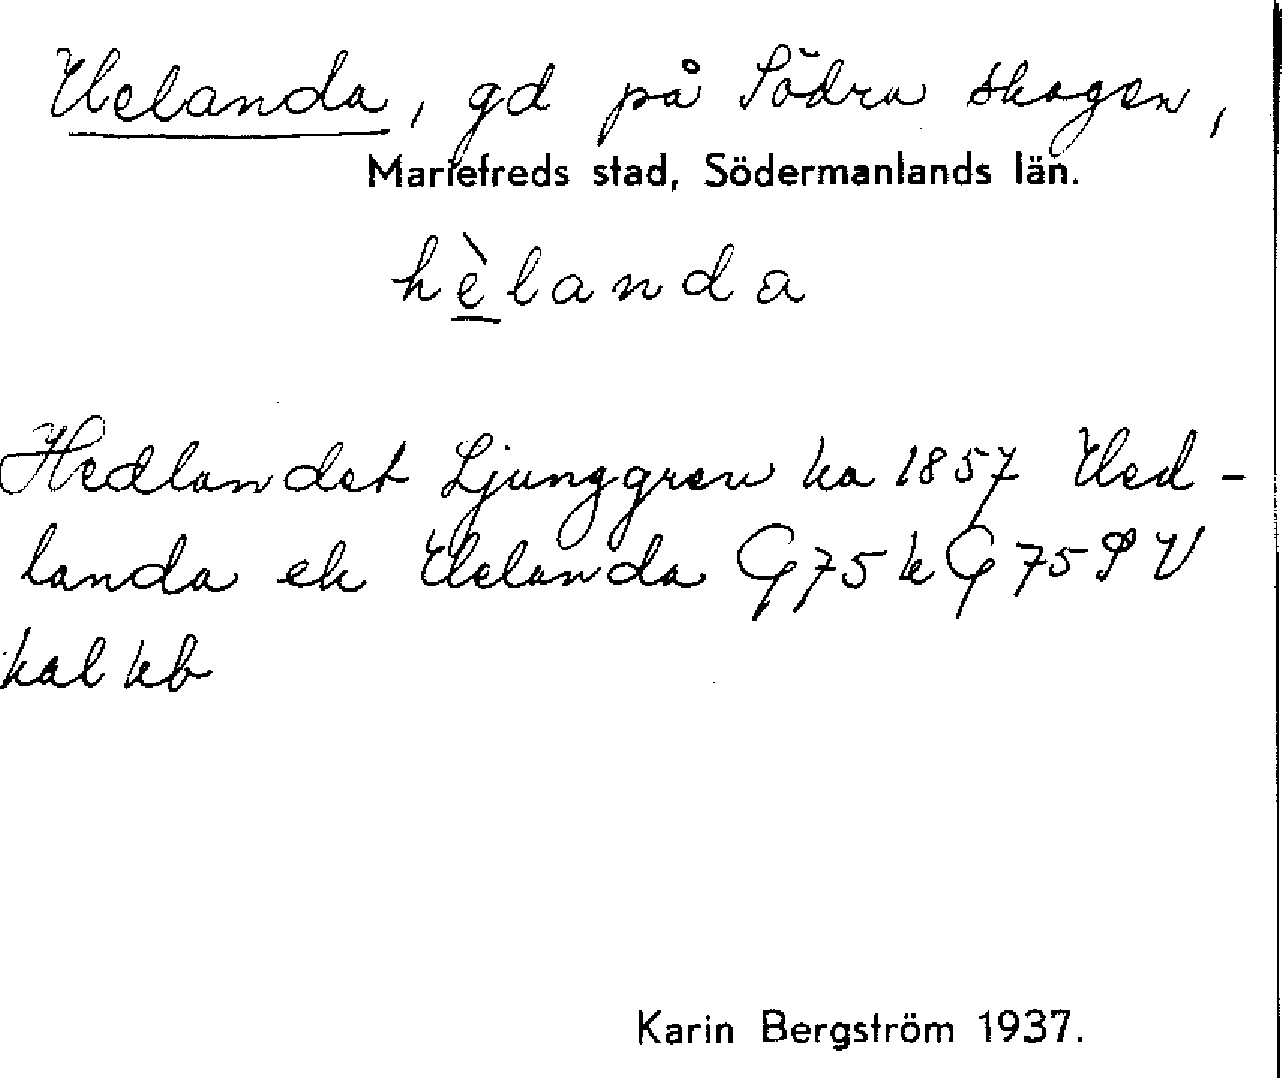 Helanda, gd på Södra skogen,
Mariefreds stad, Södermanlands län.
hèlanda
Hedlandet Ljunggren ka 1857 Hed-
landa ek Helanda G75k G75 P V
kal kb
Karin Bergström 1937.